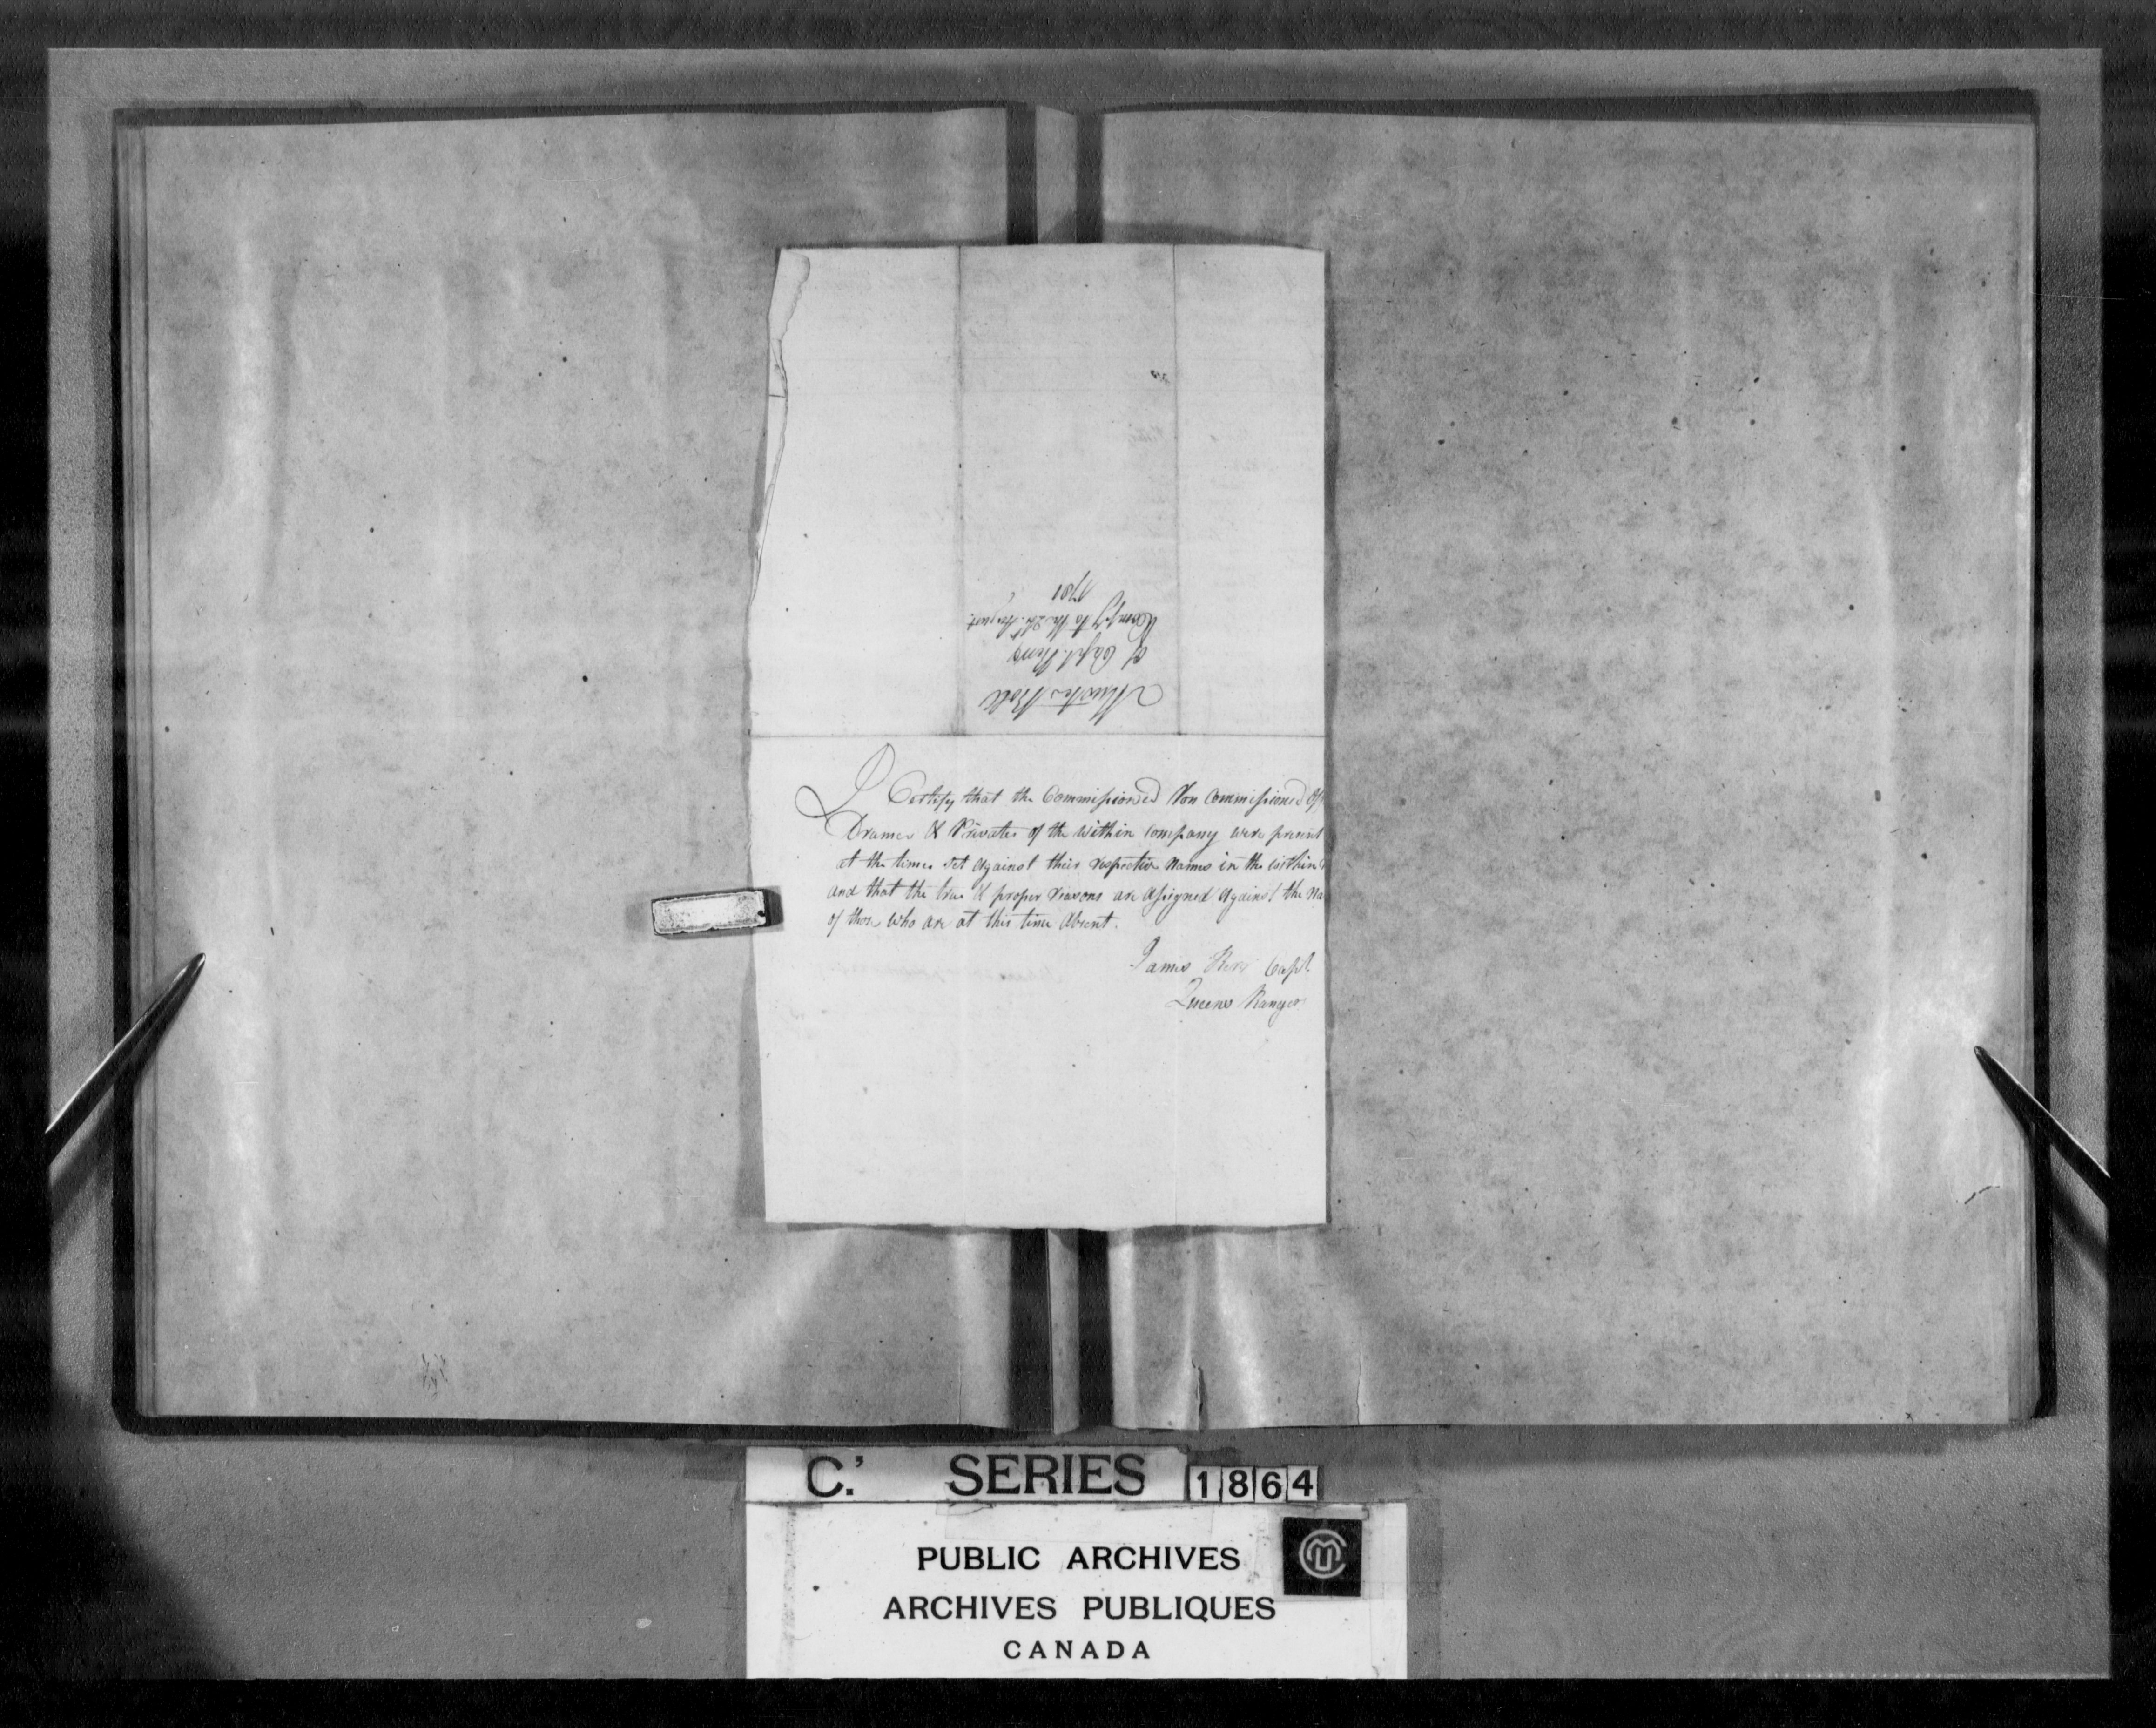 Muster Roll
of Capt. Kerrs
Company to the 24th August
1781
I Certify that the Commissioned Non Commissioned Off
Drumrs & Privates of the within Company were present
at the times set against their respective Names in the within
and that the true & proper reasons are assigned against the Na
of those who are at this time Absent.
James Kerr Capt
Queens Rangers
C.' SERIES 1864
PUBLIC ARCHIVES
ARCHIVES PUBLIQUES
CANADA